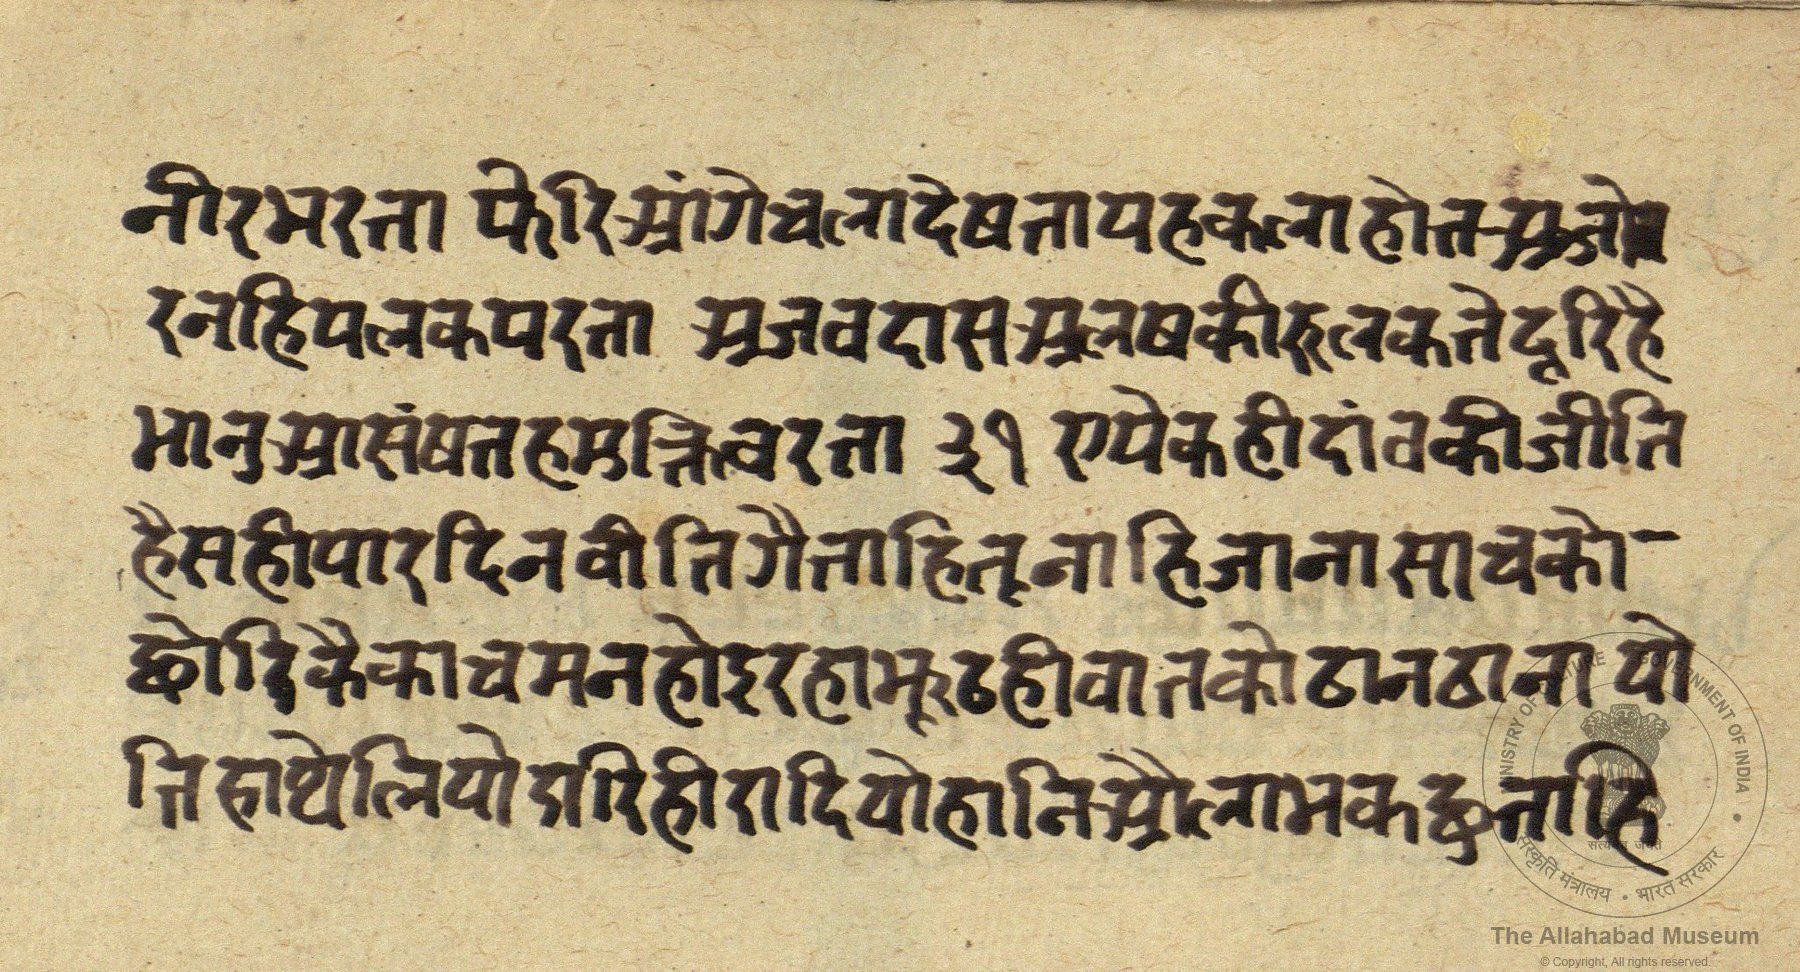 नीरभरता फेरि आंगे चला देषता यह कला होत अजोष
र नहि पलक परता अजवदास अलष की झलक ते दूरि है
भानु आसंषत हमक्तिचरता ३१ एयेक ही दांव की जीति
है सही पार दिन वीति गै ताहि तू नाहि जाना साच को-
छोरि कै काच मन होइ रहा भूठ ही वात को ठान ठाना पो
ति हाथे लियो डारि हीरा दियो हानि औ लाभ कछु नाहि
MINISTRY OF CULTURE GOVERNMENT OF INDIA
सत्यमेव जयते
संस्कृति मंत्रालय • भारत सरकार
The Allahabad Museum
© Copyright, All rights reserved.